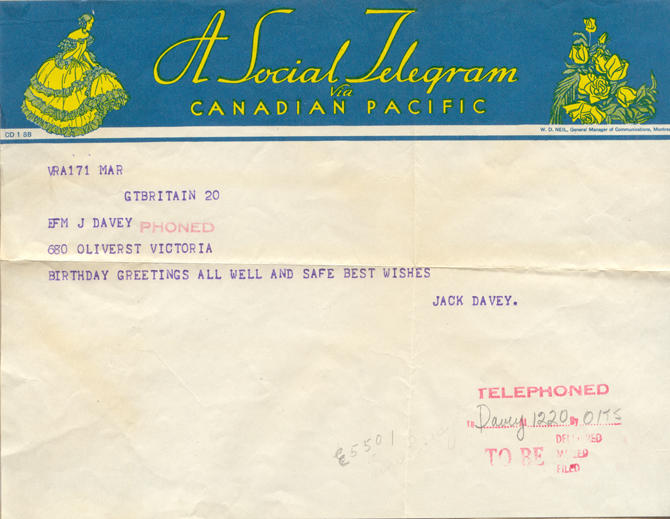 A Social Telegram
Via
CANADIAN PACIFIC
CD 1 8B
W. D. NEIL, General Manager of Communications, Montreal
VRA171 MAR
GTBRITAIN 20
EFM J DAVEY PHONED
680 OLIVERST VICTORIA
BIRTHDAY GREETINGS ALL WELL AND SAFE BEST WISHES
JACK DAVEY.
TELEPHONED
To Davey At 1220 By
DELIVERED
TO BE MAILED
FILED